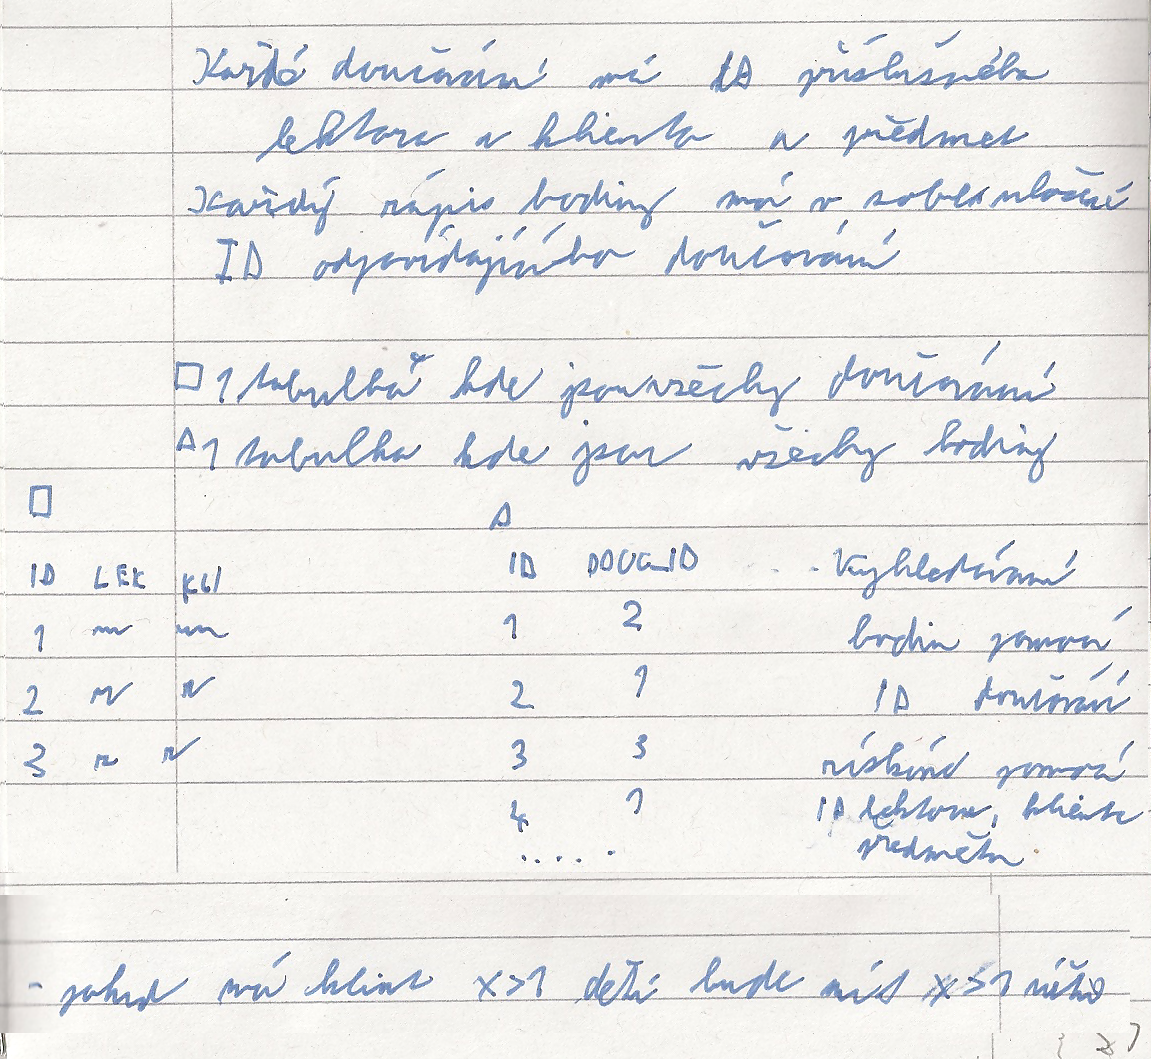 Každé doučování má ID příslušného
lektora a klienta a předmet
Každý zápis hodiny má v sobě uložené
ID odpovídajícího doučování
□ 1 tabulka kde jsou všechy doučování
△ 1 tabulka kde jsou všechy hodiny
□ △
ID LEK KLI ID DOUC_ID .. Vyhledávaní
1 1 2 hodin pomocí
2 2 1 ID doučování
3 3 3 získáné pomocí
4 1 ID lektora, klienta
..... předmětu
- pokud má klient x>1 dětí bude mít x>1 účtů